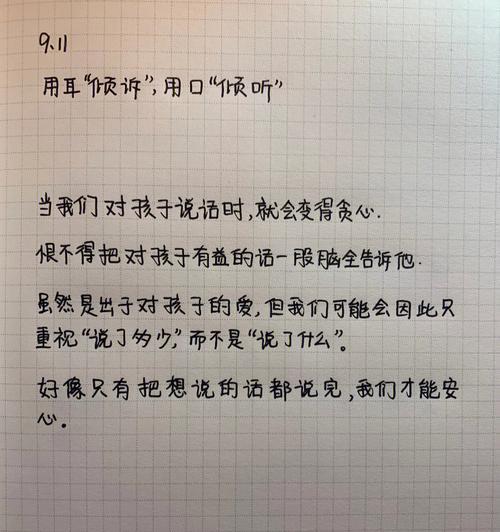 9.11
用耳“倾诉”，用口“倾听”
当我们对孩子说话时，就会变得贪心.
恨不得把对孩子有益的话一股脑全告诉他.
虽然是出于对孩子的爱，但我们可能会因此只
重视“说了多少”，而不是“说了什么”。
好像只有把想说的话都说完，我们才能安
心。